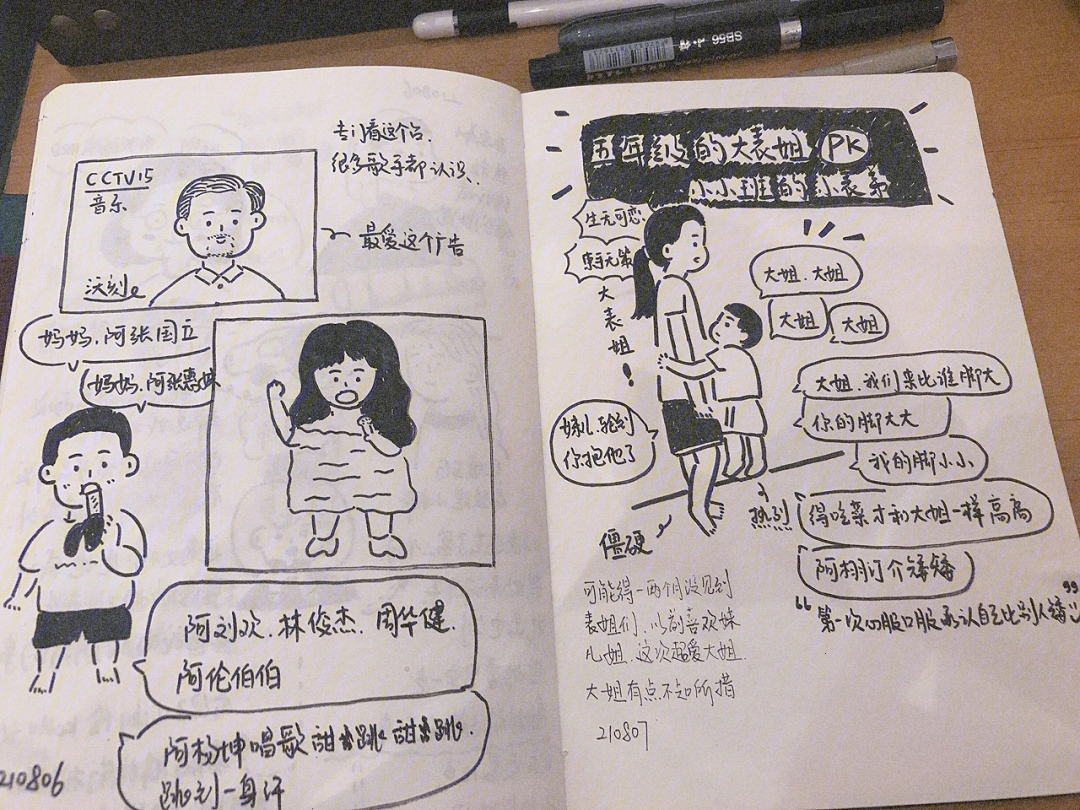 专门看这个台.
很多歌手都认识.
CCTV15
音乐
沃刻
最爱这个广告
妈妈.阿张国立
妈妈.阿张惠妹
阿刘欢.林俊杰.周华健.
阿伦伯伯
阿杨坤唱歌
跳到一身汗
210806
五年级的大表姐 PK
小小班的小表弟
生无可恋
束手无策
大表姐!
大姐.大姐
大姐
大姐
大姐.我们来比谁脚大
你的脚大大
我的脚小小
妹儿.轮到
你抱他了
热烈
得吃菜才和大姐一样高高
僵硬
矮矮
“第一次心服口服承认自己比别人矮”
可能得一两个月没见到
表姐们.以前喜欢妹
儿姐.这次超爱大姐.
大姐有点不知所措
210807
SB56
210806